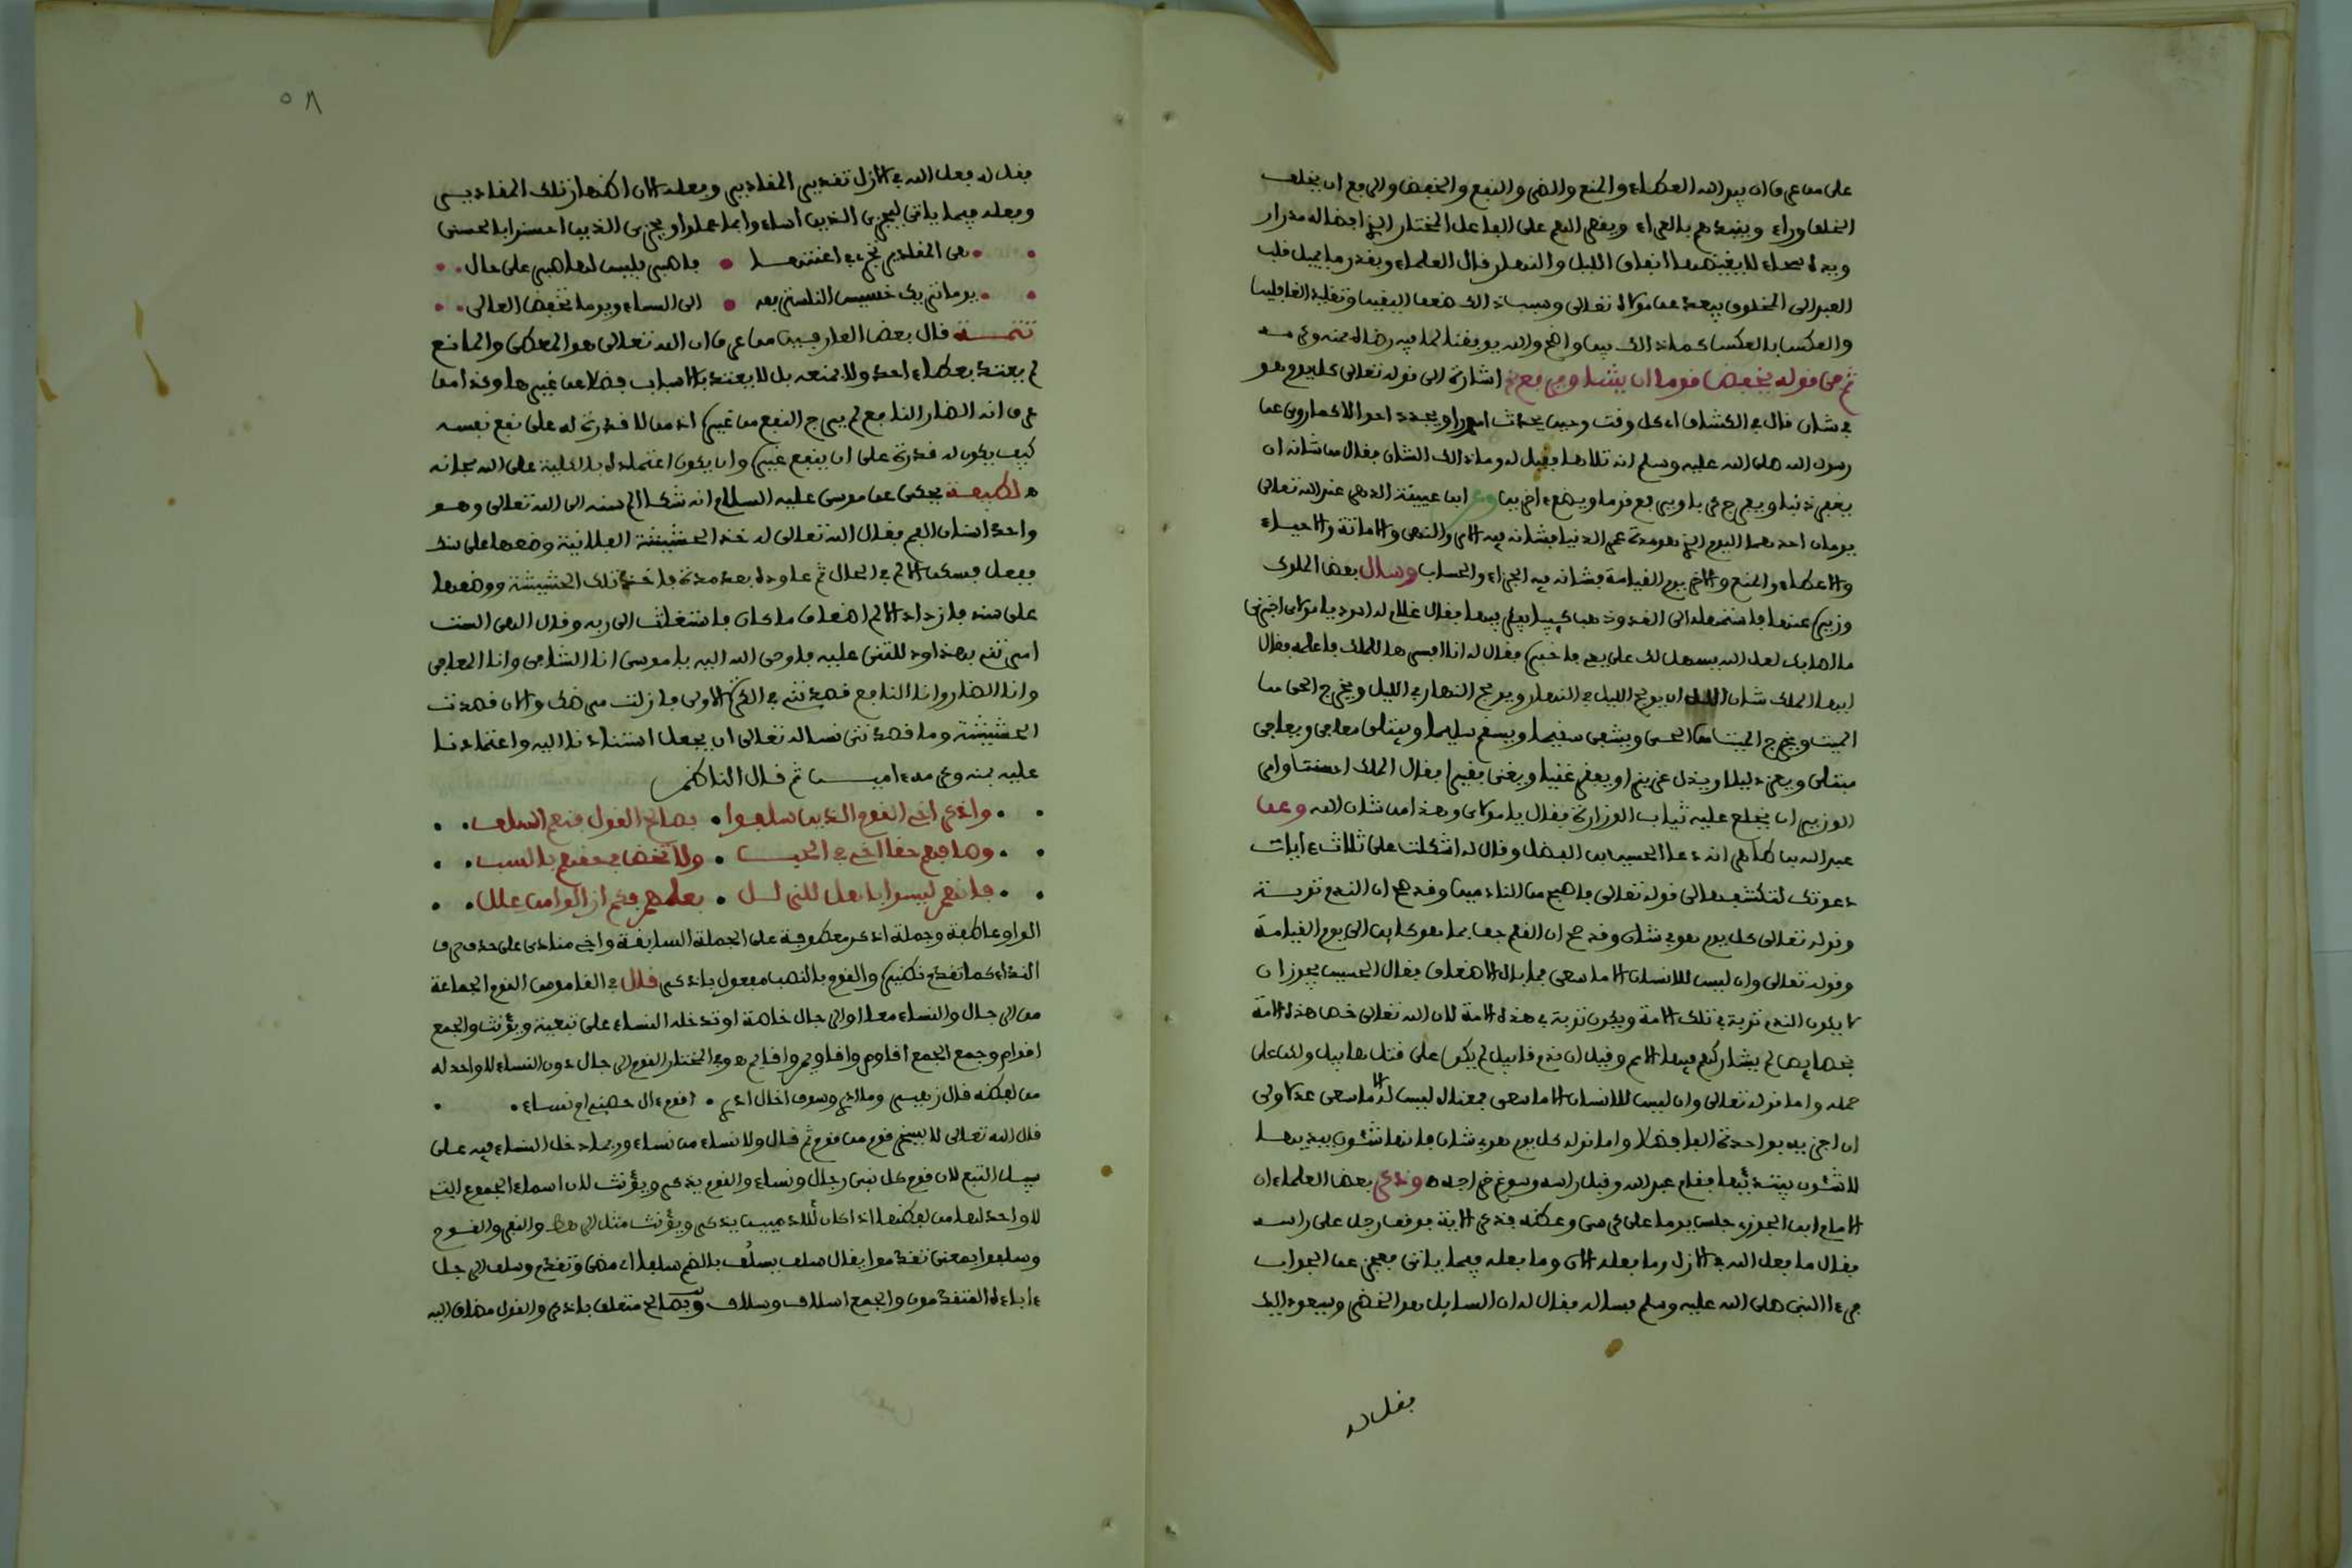 على من عرف ان بيد الله العطاء والمنع والضر والنفع والخفض والرفع ان يخلف
الخلق وراءه وينبذهم بالعراء ويقصر النعم على الفاعل المختار الذي افضاله مدرار
ويده سحاء لا يغيضها انفاق الليل والنهار قال العلماء وبقدر ما يميل قلب
العبد الى المخلوق يبعد عن مولاه تعالى وسبب ذلك ضعف اليقين وتقليد الغافلين
والعكس بالعكس كما ذلك بين واضح والله يوفقنا لما فيه رضاه بمنه وكرمه
ثم في قوله يخفض قوما ان يشا ويرفع اشارة الى قوله تعالى كل يوم هو
في شان قال في الكشاف اي كل وقت وحين يحدث امورا ويجدد احوالا كما روي عن
رسول الله صلى الله عليه وسلم انه تلاها فقيل له وما ذلك الشان فقال من شانه ان
يغفر ذنبا ويفرج كربا ويرفع قوما ويضع ءاخرين وعن ابن عيينة الدهر عند الله تعالى
يومان احدهما اليوم الذي هو مدة عمر الدنيا فشانه فيه الامر والنهي والاماتة والاحياء
والاعطاء والمنع والاخر يوم القيامة فشانه فيه الجزاء والحساب وسال بعض الملوك
وزيره عنها فاستمهله الى الغد وذهب كئيبا يفكر فيها فقال غلام له اسود يا مولاي اخبرني
ما اصابك لعل الله يسهل لك على يدي فاخبره فقال له انا افسرها للملك فاعلمه فقال
ايها الملك شان الله ان يولج الليل في النهار ويولج النهار في الليل ويخرج الحي من
الميت ويخرج الميت من الحي ويشفي سقيما ويسقم سليما ويبتلي معافى ويعافي
مبتلى ويعز ذليلا ويذل عزيزا ويفقر غنيا ويغني فقيرا فقال الملك احسنت وامر
الوزير ان يخلع عليه ثياب الوزارة فقال يا مولاي وهذا من شان الله وعن
عبد الله بن طاهر انه دعا الحسين بن الفضل وقال له اشكلت علي ثلاث ءايات
دعوتك لتكشفها لي قوله تعالى فاصبح من النادمين وقد صح ان الندم توبة
وقوله تعالى كل يوم هو في شان وقد صح ان القلم جف بما هو كاين الى يوم القيامة
وقوله تعالى وان ليس للانسان الا ما سعى فما بال الاضعاف فقال الحسين يجوز ان
لا يكون الندم توبة في تلك الامة ويكون توبة في هذه الامة لان الله تعالى خص هذه الامة
بخصايص لم يشاركهم فيها الامم وقيل ان ندم قابيل لم يكن على قتل هابيل ولكن على
حمله واما قوله تعالى وان ليس للانسان الا ما سعى فمعناه ليس له الا ما سعى عدلا ولي
ان اجزيه بواحدة الفا فضلا واما قوله كل يوم هو في شان فانها شئون يبديها
لا شئون يبتدئها فقام عبد الله وقبل راسه وسوغ خراجه وذكر بعض العلماء ان
الامام ابن الجوزي جلس يوما على كرسي وعظه فذكر الاية فوقف رجل على راسه
فقال ما فعل الله في الازل وما فعله الان وما يفعله فيما ياتي فعجز عن الجواب
فرءا النبي صلى الله عليه وسلم فساله فقال له ان السايل هو الخضر وسيعود اليك
فقل له
٥٨
فقل له فعل الله في الازل تقدير المقادير وفعله الان اظهار تلك المقادير
وفعله فيما ياتي ليجزي الذين اساءوا بما عملوا ويجزي الذين احسنوا بالحسنى
هي المقادير تجري في اعنتها فاصبر فليس لها صبر على حال
يوما تريك خسيس الناس ترفعه الى السماء ويوما تخفض العالي
تتمة قال بعض العارفين من عرف ان الله تعالى هو المعطي والمانع
لم يعتد بعطاء احد ولا بمنعه بل لا يعتد بالاسباب فضلا عن غيرها وكذا من
عرف انه الضار النافع لم يرج النفع من غيره اذ من لا قدرة له على نفع نفسه
كيف يكون له قدرة على ان ينفع غيره وان يكون اعتماده بالكلية على الله سبحانه
لطيفة يحكى عن موسى عليه السلام انه شكا الم سنه الى الله تعالى وهو
واحد اسنان الفم فقال الله تعالى له خذ الحشيشة الفلانية وضعها على سنك
ففعل فسكن الالم في الحال ثم عاوده بعد مدة فاخذ تلك الحشيشة ووضعها
على سنه فازداد الالم اضعاف ما كان فاستغاث الى ربه وقال الهي الست
امرتني بهذا ودللتني عليه فاوحى الله اليه يا موسى انا الشافي وانا المعافي
وانا الضار وانا النافع قصدتني في الكرة الاولى فازلت مرضك والان قصدت
الحشيشة وما قصدتني نساله تعالى ان يجعل استنادنا اليه واعتمادنا
عليه بمنه وكرمه ءامين ثم قال الناظم
واذكر اخي القوم الذين سلفوا بصالح القول فنعم السلف
وصل فيهم حقا اخي في الحب ولا تخض في حقهم بالسب
فانهم ليسوا باهل للزلل بعلمهم فكم ازالوا من علل
الواو عاطفة وجملة اذكر معطوفة على الجملة السابقة واخي منادى على حذف حرف
النداء كما تقدم نظيره والقوم بالنصب مفعول باذكر قال في القاموس القوم الجماعة
من الرجال والنساء معا او الرجال خاصة او تدخله النساء على تبعية ويؤنث والجمع
اقوام وجمع الجمع اقاوم واقاويم واقايم وفي المختار القوم الرجال دون النساء لا واحد له
من لفظه قال زهير وما ادري وسوف اخال ادري اقوم ءال حصن ام نساء
قال الله تعالى لا يسخر قوم من قوم ثم قال ولا نساء من نساء وربما دخل النساء فيه على
سبيل التبع لان قوم كل نبي رجال ونساء والقوم يذكر ويؤنث لان اسماء الجموع التي
لا واحد لها من لفظها اذا كان للادميين يذكر ويؤنث مثل الرهط والنفر والقوم
وسلفوا بمعنى تقدموا يقال سلف يسلف بالضم سلفا اي مضى وتقدم وسلف الرجل
ءاباءه المتقدمون والجمع اسلاف وسلاف وبصالح متعلق باذكر والقول مضاف اليه